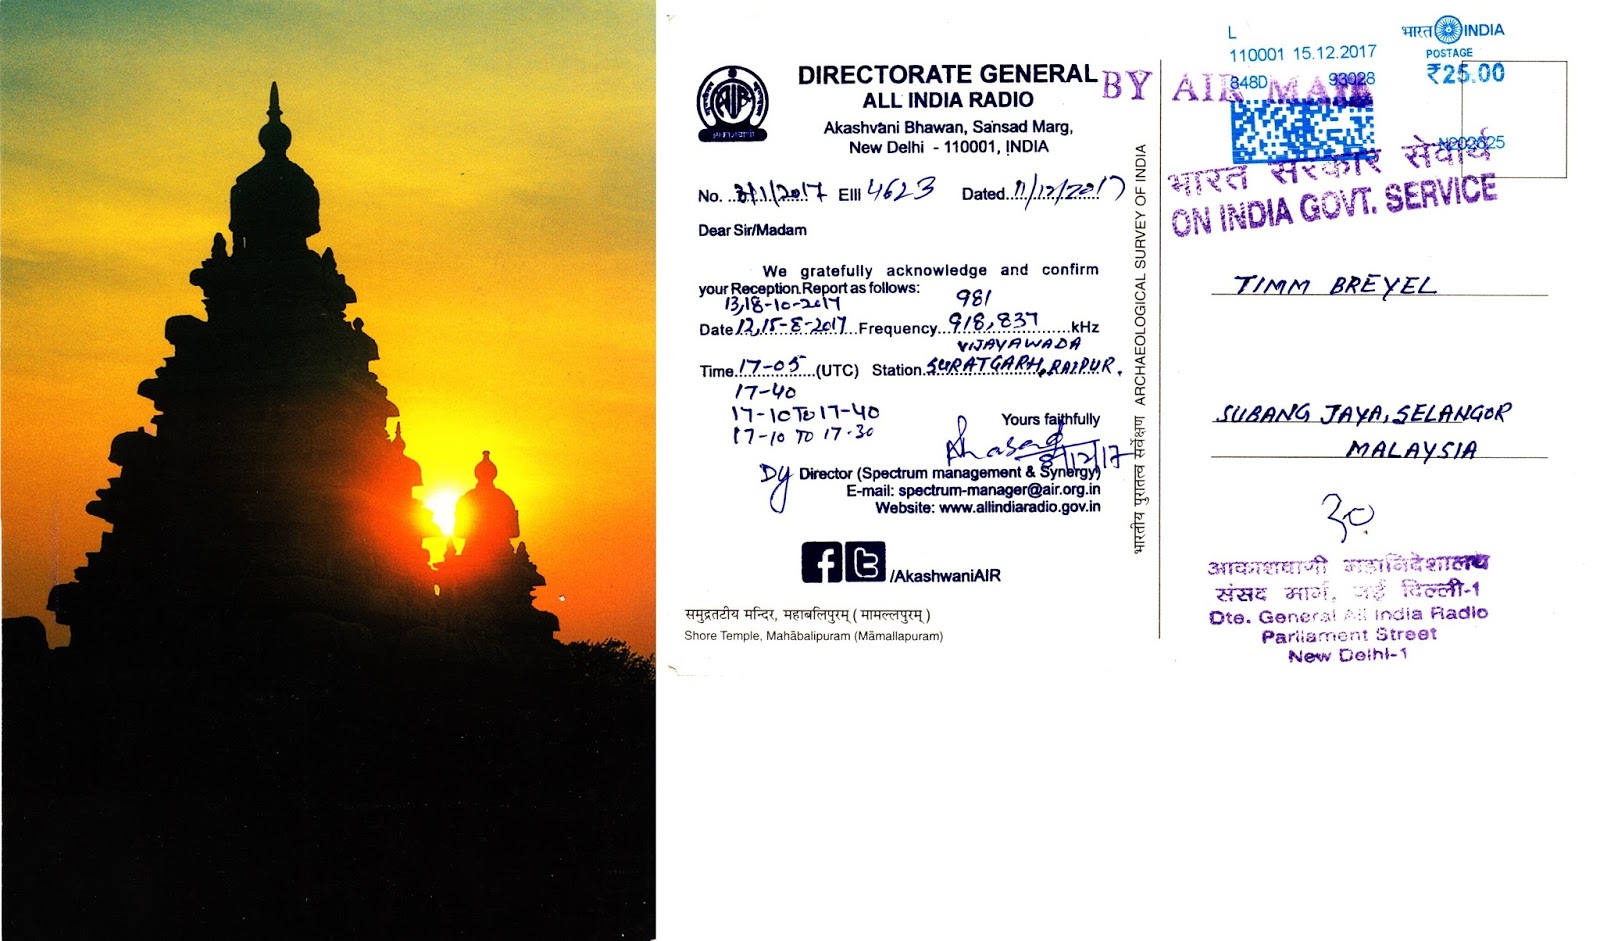 DIRECTORATE GENERAL
ALL INDIA RADIO
Akashvani Bhawan, Sansad Marg,
New Delhi - 110001, INDIA
No. ../1/2017 EIII 4623 Dated 11/12/2017
Dear Sir/Madam
We gratefully acknowledge and confirm
your Reception Report as follows:
13,18-10-2017 981
Date 12,15-8-2017 Frequency 918,837 kHz
VIJAYAWADA
Time 17-05 (UTC) Station SURATGARH, RAIPUR.
17-40
17-10 TO 17-40
17-10 TO 17-30
Yours faithfully
8/12/17
Dy Director (Spectrum management & Synergy)
E-mail: spectrum-manager@air.org.in
Website: www.allindiaradio.gov.in
/AkashwaniAIR
समुद्रतटीय मन्दिर, महाबलिपुरम् ( मामल्लपुरम् )
Shore Temple, Mahābalipuram (Māmallapuram)
भारतीय पुरातत्व सर्वेक्षण ARCHAEOLOGICAL SURVEY OF INDIA
L
110001 15.12.2017
848D 93028
भारत INDIA
POSTAGE
₹25.00
N202625
BY AIR MAIL
भारत सरकार सेवार्थ
ON INDIA GOVT. SERVICE
TIMM BREYEL
SUBANG JAYA, SELANGOR
MALAYSIA
३०
आकाशवाणी महानिदेशालय
संसद मार्ग, नई दिल्ली-1
Dte. General All India Radio
Parliament Street
New Delhi-1